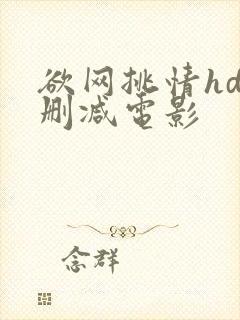 欲网挑情hd
删减电影
念群